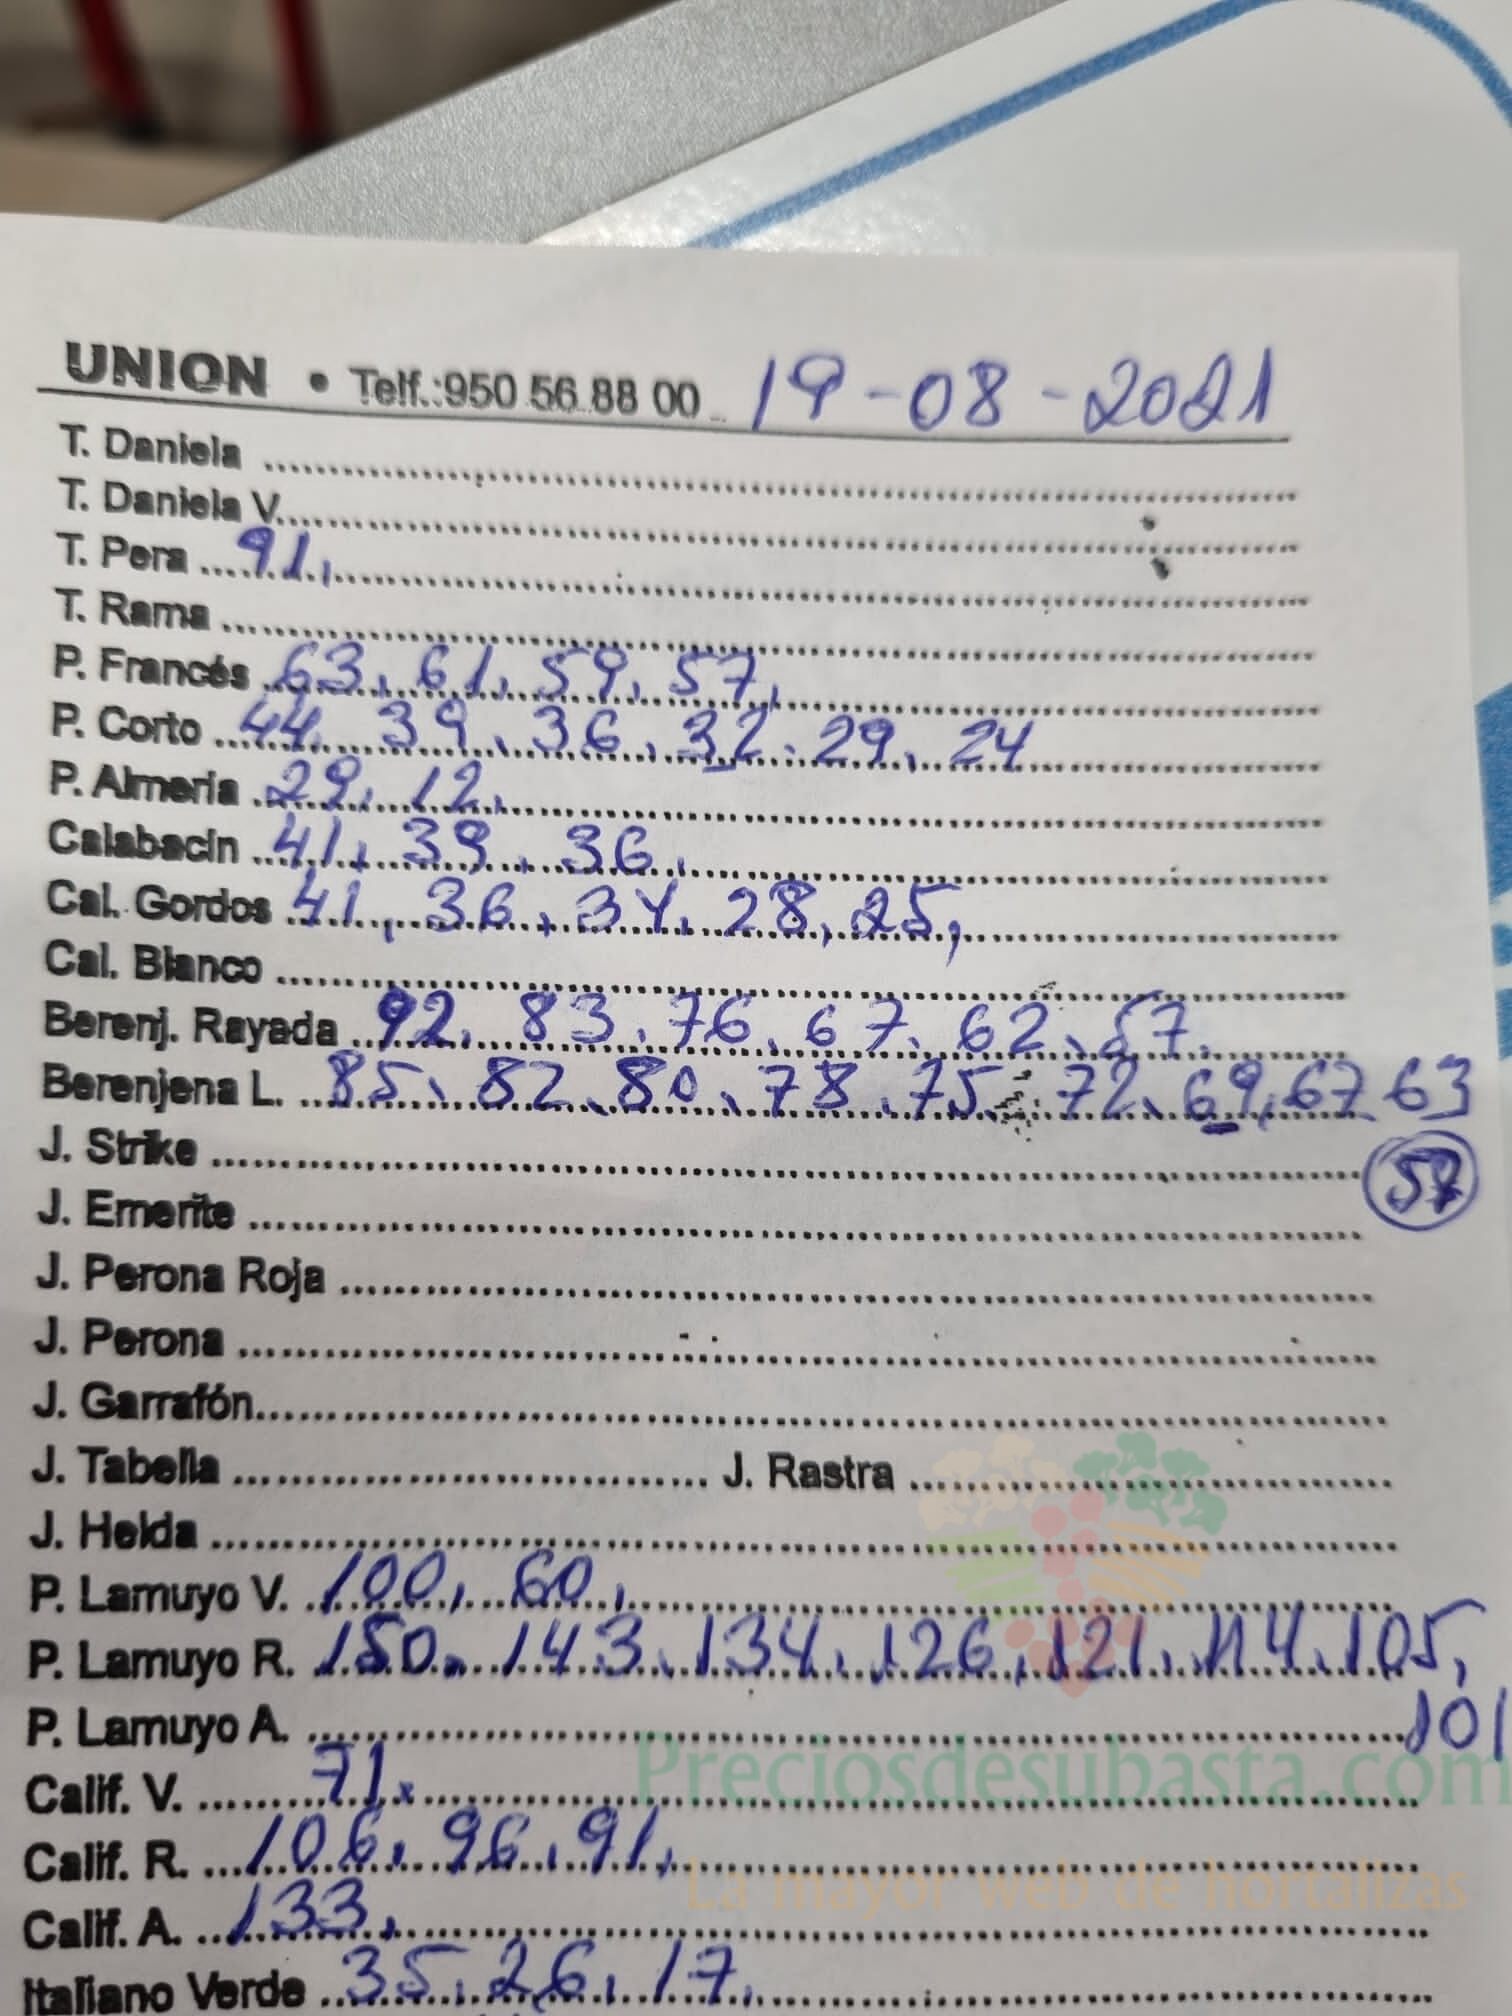 UNION • Telf.:950 56 88 00 19-08-2021
T. Daniela
T. Daniela V.
T. Pera 91,
T. Rama
P. Francés 63, 61, 59, 57,
P. Corto 44, 39, 36, 32, 29, 24
P. Almería 29, 12,
Calabacín 41, 39, 36,
Cal. Gordos 41, 36, 34, 28, 25,
Cal. Blanco
Berenj. Rayada 92, 83, 76, 67, 62, 57,
Berenjena L. 85, 82, 80, 78, 75, 72, 69, 67, 63
J. Strike
J. Emerite
J. Perona Roja
J. Perona
J. Garrafón
J. Tabella J. Rastra
J. Helda
P. Lamuyo V. 100, 60,
P. Lamuyo R. 150, 143, 134, 126, 121, 114, 105,
P. Lamuyo A. 101
Preciosdesubasta.com
Calif. V. 71,
Calif. R. 106, 96, 91,
La mayor web de hortalizas
Calif. A. 133,
Italiano Verde 35, 26, 17,